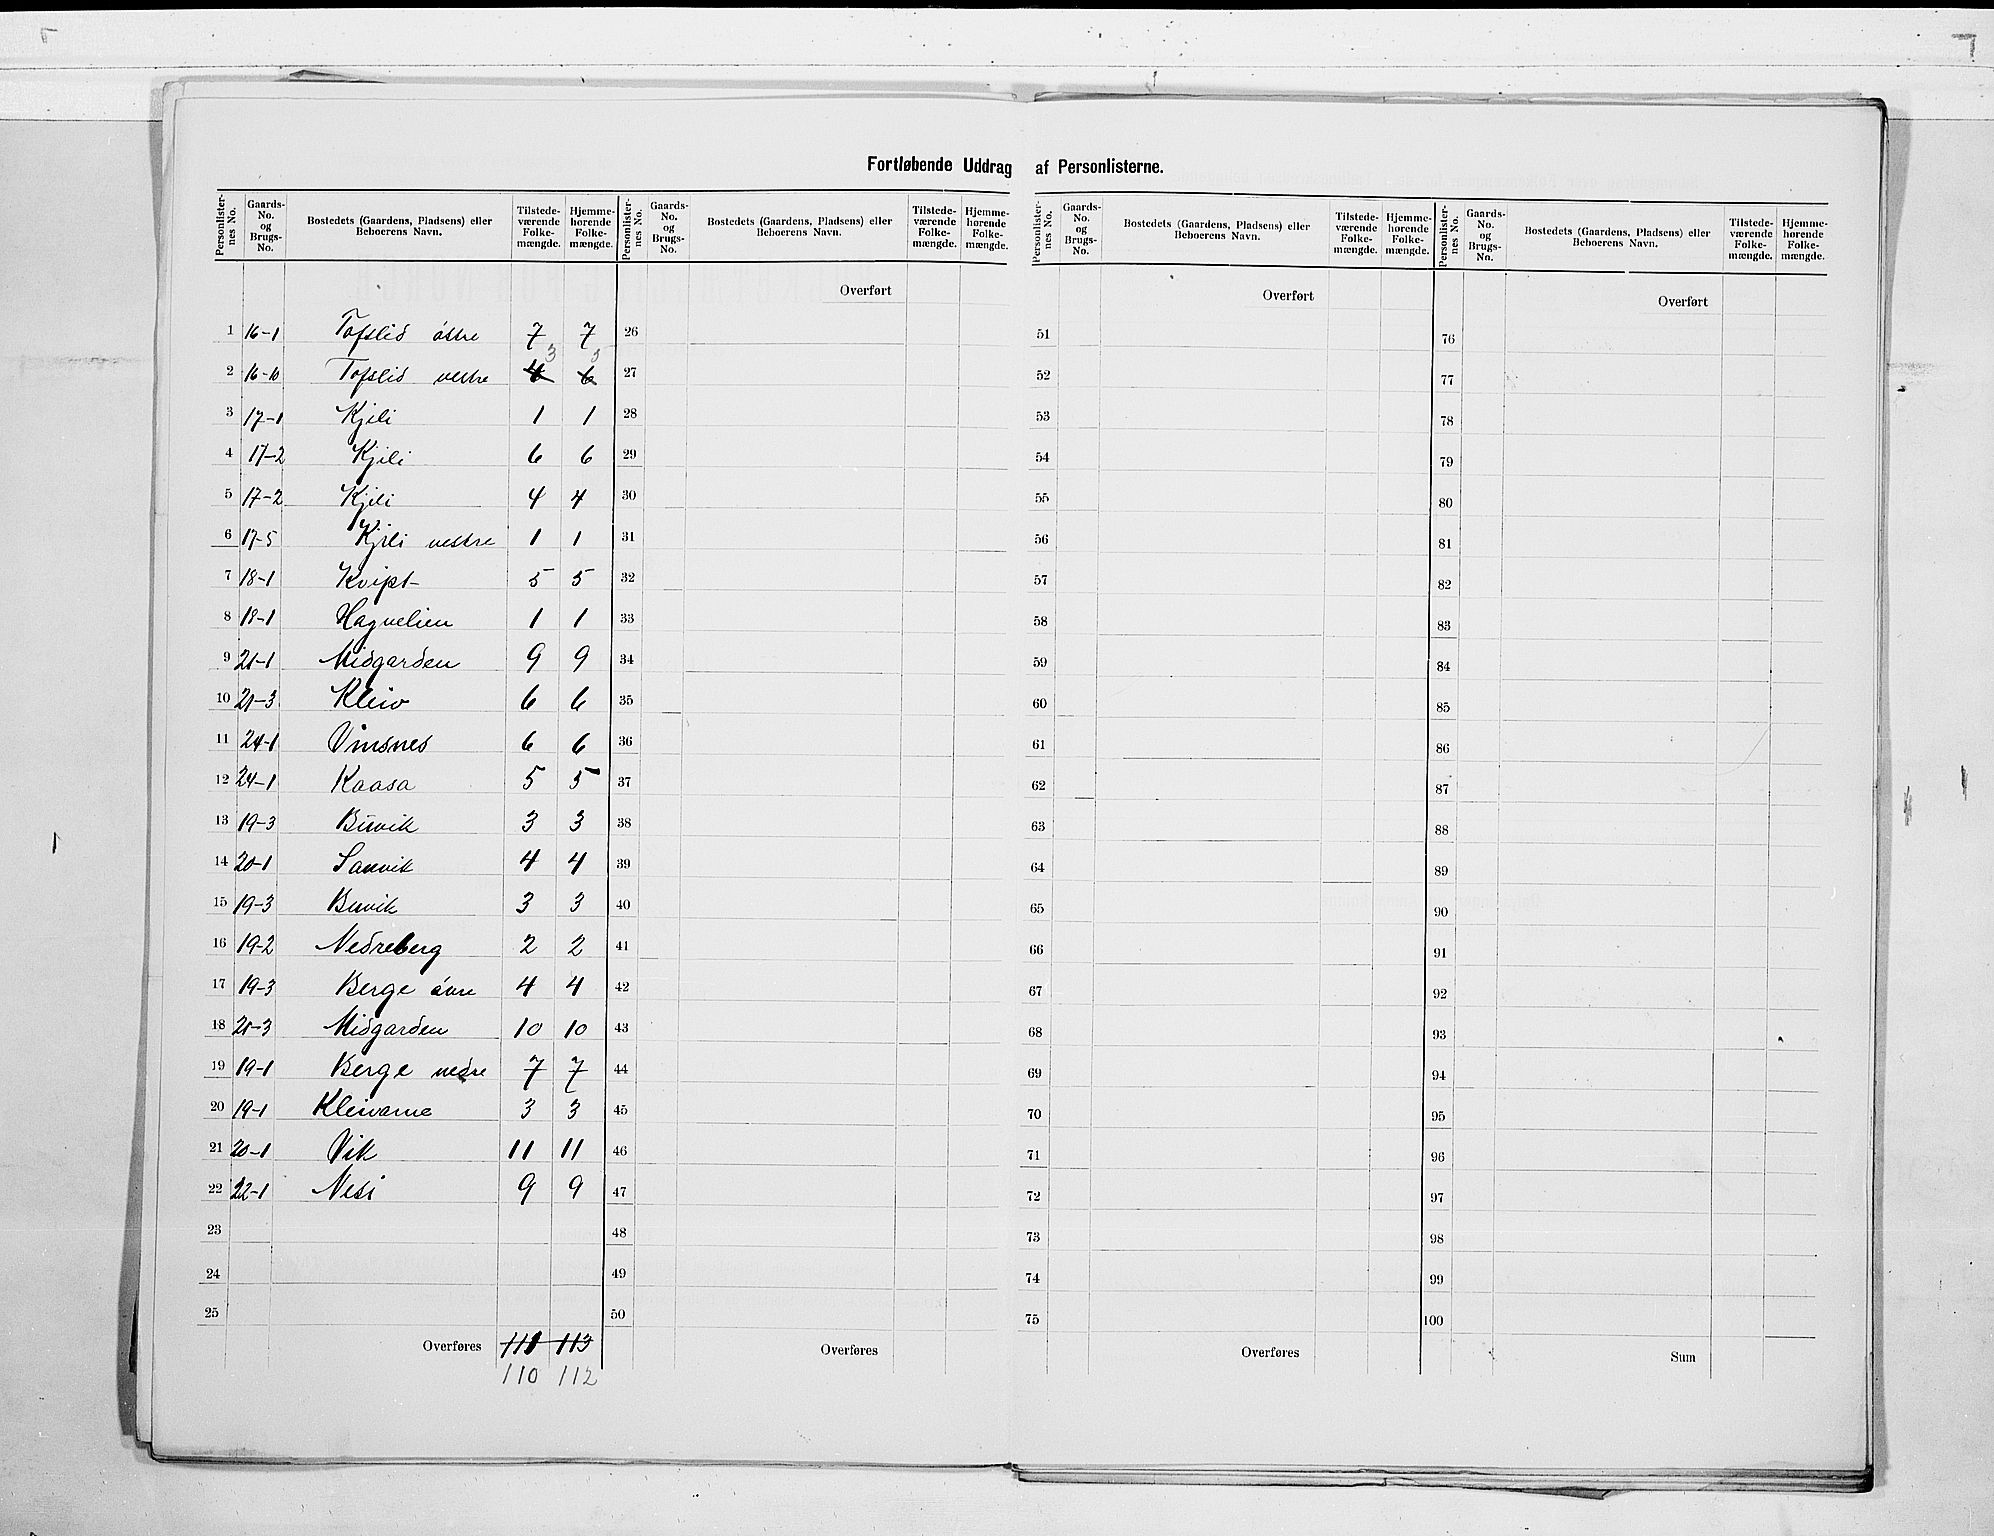 Fortløbende Uddrag af Personlisterne.
Personlister-nes No. | Gaards-No. og Brugs-No. | Bostedets (Gaardens, Pladsens) eller Beboerens Navn. | Tilstede-værende Folke-mængde. | Hjemme-hørende Folke-mængde.
Personlister-nes No. | Gaards-No. og Brugs-No. | Bostedets (Gaardens, Pladsens) eller Beboerens Navn. | Tilstede-værende Folke-mængde. | Hjemme-hørende Folke-mængde.
Personlister-nes No. | Gaards-No. og Brugs-No. | Bostedets (Gaardens, Pladsens) eller Beboerens Navn. | Tilstede-værende Folke-mængde. | Hjemme-hørende Folke-mængde.
Personlister-nes No. | Gaards-No. og Brugs-No. | Bostedets (Gaardens, Pladsens) eller Beboerens Navn. | Tilstede-værende Folke-mængde. | Hjemme-hørende Folke-mængde.
Overført Overført Overført
1 16-1 Tofslid östre 7 7 26 51 76
2 16-10 Tofslid vestre 4 3 6 5 27 52 77
3 17-1 Kjili 1 1 28 53 78
4 17-2 Kjili 6 6 29 54 79
5 17-2 Kjili 4 4 30 55 80
6 17-5 Kjili vestre 1 1 31 56 81
7 18-1 Kvipt 5 5 32 57 82
8 18-1 Hagvelien 1 1 33 58 83
9 21-1 Midgarden 9 9 34 59 84
10 21-3 Kleiv 6 6 35 60 85
11 24-1 Vinsnes 6 6 36 61 86
12 24-1 Kaasa 5 5 37 62 87
13 19-3 Buvik 3 3 38 63 88
14 20-1 Sanvik 4 4 39 64 89
15 19-3 Buvik 3 3 40 65 90
16 19-2 Nedreberg 2 2 41 66 91
17 19-3 Berge övre 4 4 42 67 92
18 21-3 Midgarden 10 10 43 68 93
19 19-1 Berge nedre 7 7 44 69 94
20 19-1 Kleivarne 3 3 45 70 95
21 20-1 Vik 11 11 46 71 96
22 22-1 Nesi 9 9 47 72 97
23 48 73 98
24 49 74 99
25 50 75 100
Overføres 111 113 Overføres Overføres Sum
110 112